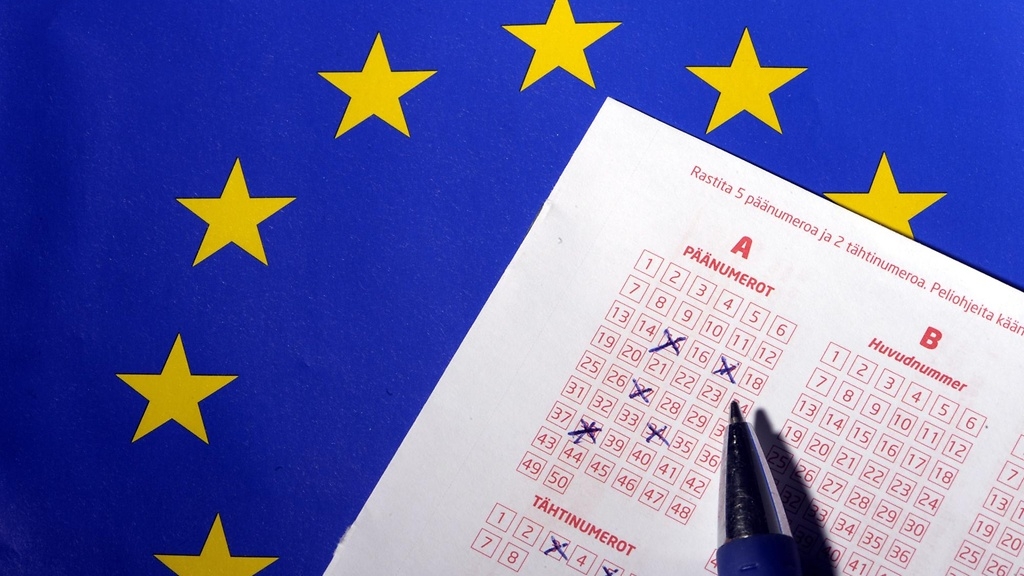 Rastita 5 päänumeroa ja 2 tähtinumeroa. Peliohjeita
A
PÄÄNUMEROT
1 2 3 4 5 6
7 8 9 10 11 12
13 14 16 18
19 20 21 22 23
25 26 28 29
31 32 33 35 36
37 39 40 41 42
43 44 45 46 47 48
49 50
TÄHTINUMEROT
1 2 4
7 8
B
Huvudnummer
1 2 3 4 5 6
7 8 9 10 11 12
13 14 15 16 17 18
19 20 21 22 23 24
25 26 27 28 29 30
32 33 34 35 36
41
1
7
13
19 20
25 26